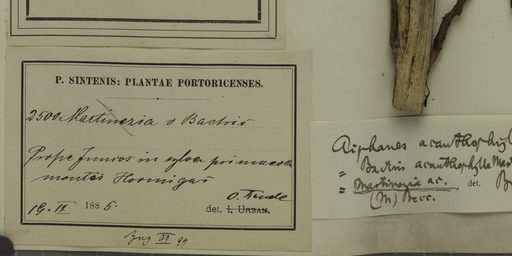 P. SINTENIS: PLANTAE PORTORICENSES.
2500 Martinezia v Bactris
Prope Juncos in sylva primaeva
montis Hormigas
O. Drude
19. IX 1885. det. I. URBAN.
Aiphanes acanthophyll
= Bactris acanthophylla Mart
= Martinezia ac. det. B
(M) Becc.